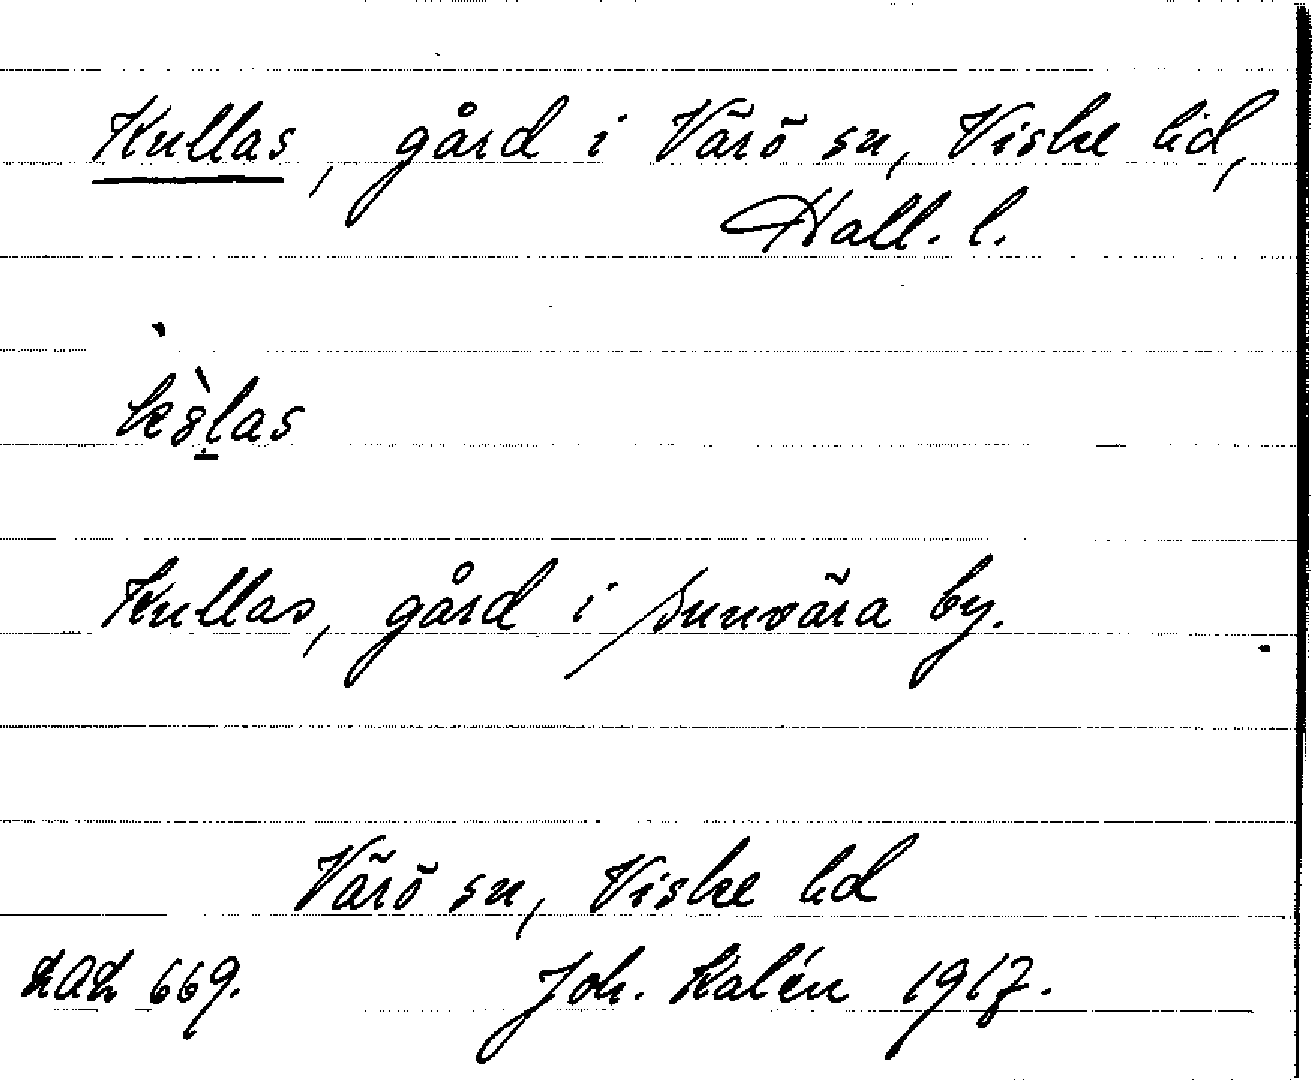 Kullas, gård i Värö sn, Viske hd,
Hall. l.
Kullas, gård i Sunvära by.
Värö sn, Viske hd
669. Joh. Kalén 1917.